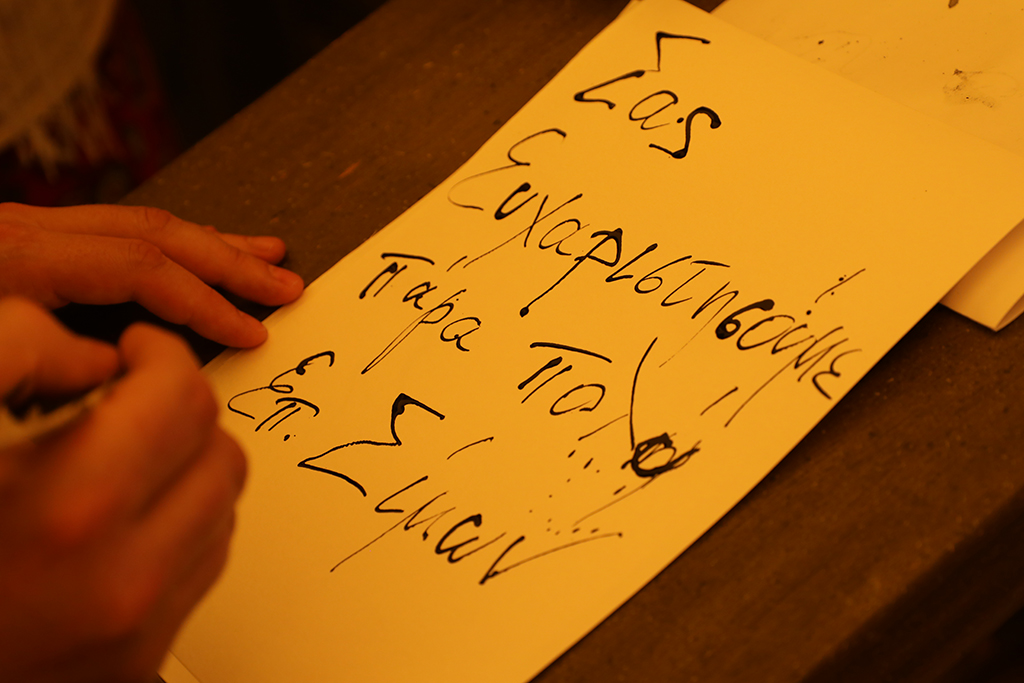 Σας
Ευχαριστησούμε
πάρα πολύ
Επ. Σίμων